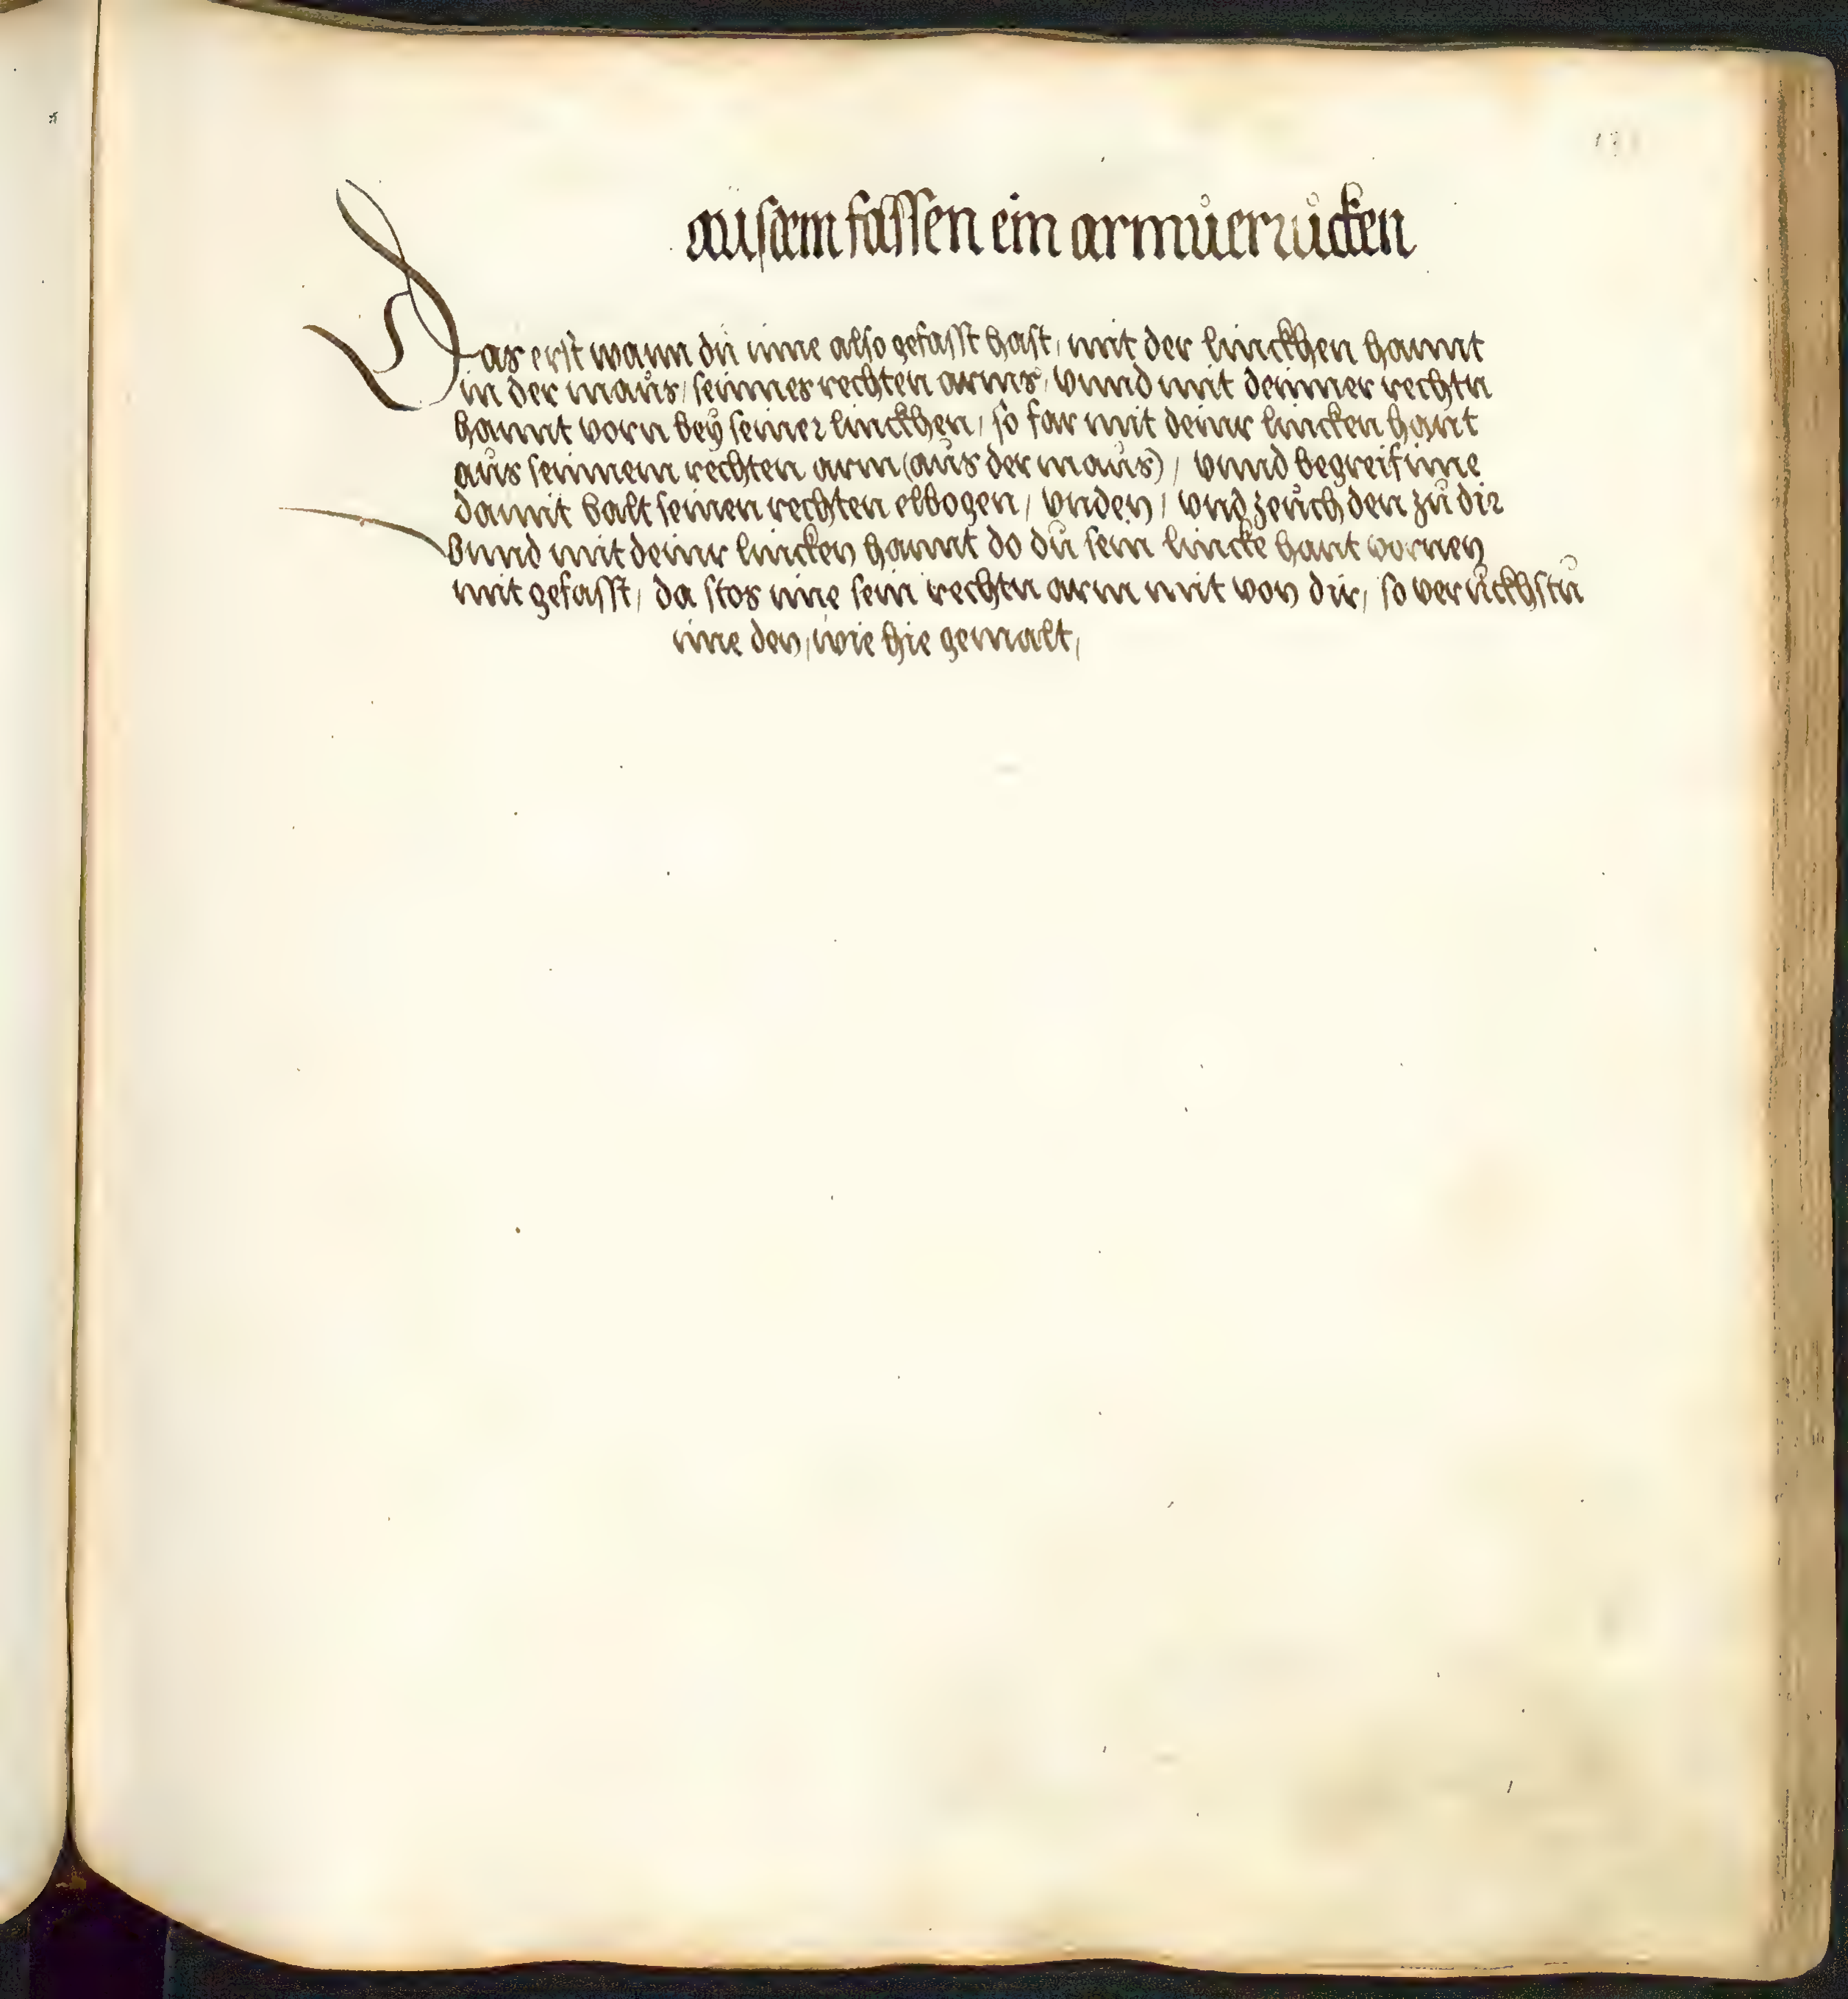 ausdem fassen ein armuerrucken
Das erst wann dů ime also gefasst hast, mit der linckhen hannt
in der maůs, seinnes rechten arms, vnnd mit deinner rechtn
hannt vorn beÿ seiner linckhen, so far mit deinr lincken hant
aůs seinnem rechten arm (aůs der maůs), vnnd begreif ime
damit balt seinen rechten elbogen, vnden, vnd zeůch den zů dir
Vnnd mit deinr lincken hannt do dů sein lincke hant vornen
mit gefasst, da stos ime sein rechtn arm mit von dir, so verůckhstů
ime den, wie hie gemalt,